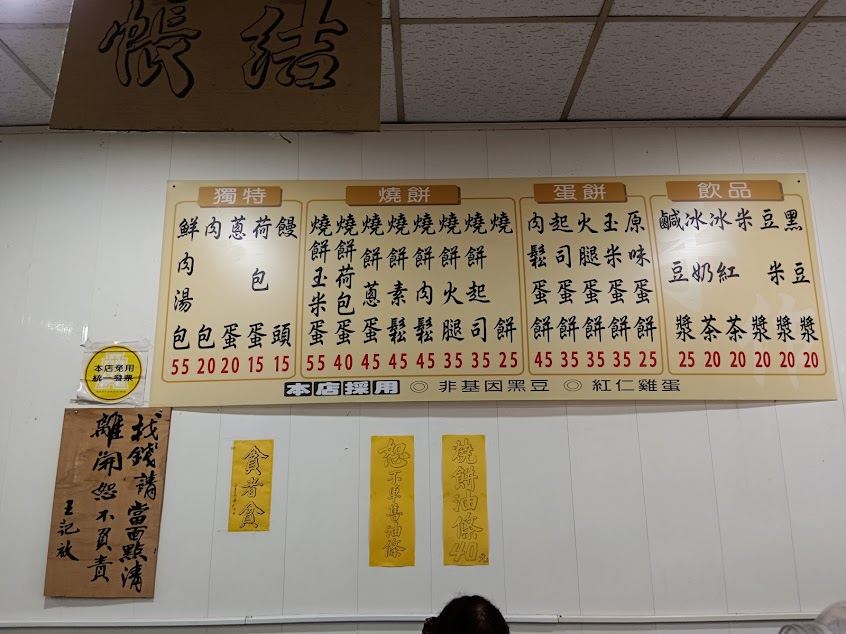 結帳
飲品
黑豆漿 20
豆米漿 20
米漿 20
冰紅茶 20
冰奶茶 20
鹹豆漿 25
蛋餅
原味蛋餅 25
玉米蛋餅 35
火腿蛋餅 35
起司蛋餅 35
肉鬆蛋餅 45
燒餅
燒餅 25
燒餅起司 35
燒餅火腿 35
燒餅肉鬆 45
燒餅素鬆 45
燒餅蔥蛋 45
燒餅荷包蛋 40
燒餅玉米蛋 55
獨特
饅頭 15
荷包蛋 15
蔥蛋 20
肉包 20
鮮肉湯包 55
本店採用 ◎ 非基因黑豆 ◎ 紅仁雞蛋
本店免用
統一發票
燒餅油條40元
恕不單賣油條
貪者貧
找錢請當面點清
離開恕不負責
王記放